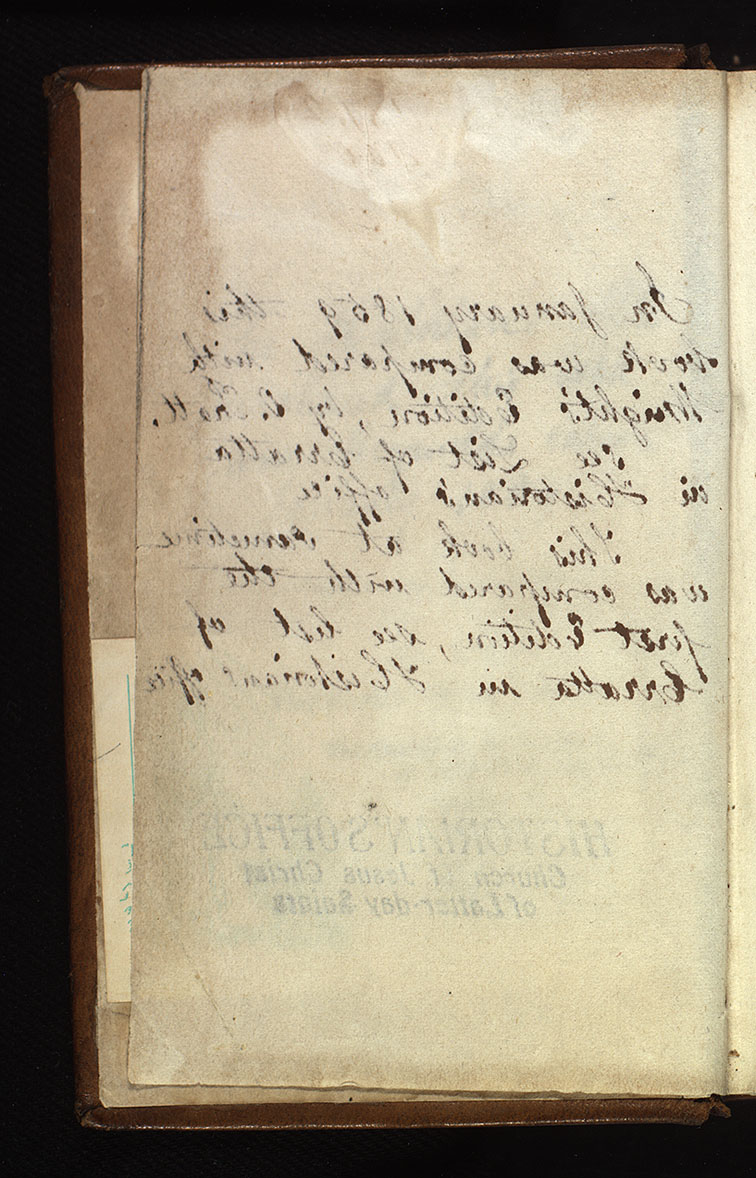 In January 1859 this
book was compared with
Wright's Edition, by
see List of Erratta
in Historian's office
This book at sometime
was compared with the
first Edition, see list of
Erratta in Historians office
HISTORIAN'S OFFICE
Church of Jesus Christ
of Latter-day Saints